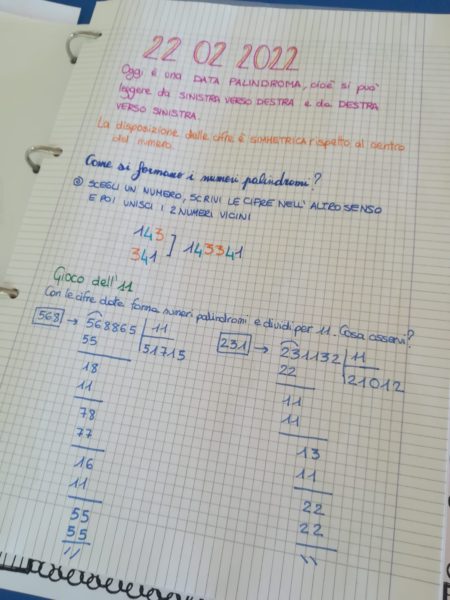 22 02 2022
Oggi è una DATA PALINDROMA, cioè si può
leggere da SINISTRA VERSO DESTRA e da DESTRA
VERSO SINISTRA.
La disposizione delle cifre è SIMMETRICA rispetto al centro
del numero.
Come si formano i numeri palindromi?
SCEGLI UN NUMERO, SCRIVI LE CIFRE NELL'ALTRO SENSO
E POI UNISCI I 2 NUMERI VICINI
143
341 ] 143341
Gioco dell'11
Con le cifre date forma numeri palindromi e dividi per 11. Cosa osservi?
568 → 568865 11
55 51715
18
11
78
77
16
11
55
55
//
231 → 231132 11
22 21012
11
11
13
11
22
22
\\